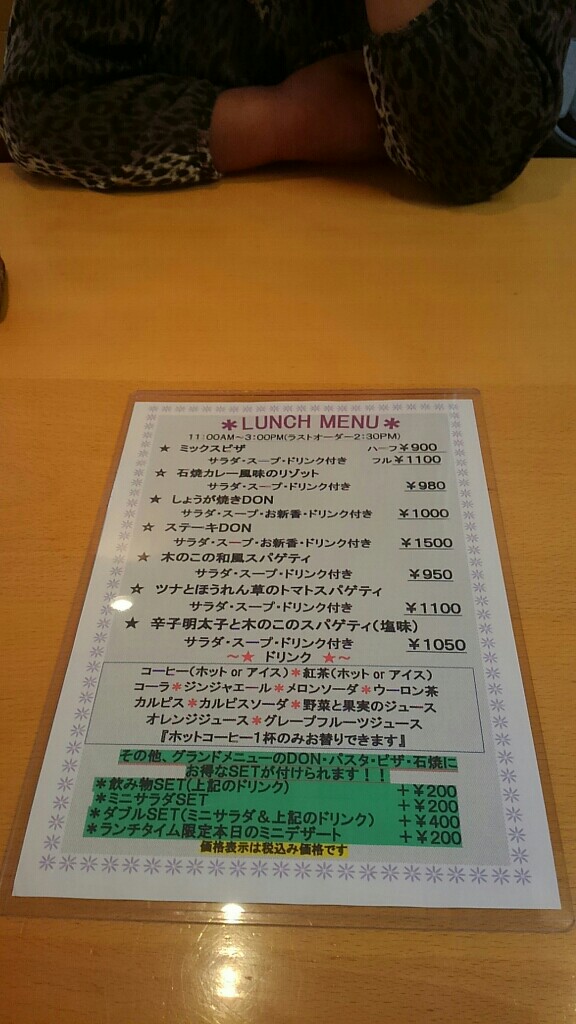 *LUNCH MENU*
11:00AM～3:00PM(ラストオーダー2:30PM)
★ ミックスピザ ハーフ￥900
サラダ・スープ・ドリンク付き フル￥1100
☆ 石焼カレー風味のリゾット
サラダ・スープ・ドリンク付き ￥980
★ しょうが焼きDON
サラダ・スープ・お新香・ドリンク付き ￥1000
☆ ステーキDON
サラダ・スープ・お新香・ドリンク付き ￥1500
★ 木のこの和風スパゲティ
サラダ・スープ・ドリンク付き ￥950
☆ ツナとほうれん草のトマトスパゲティ
サラダ・スープ・ドリンク付き ￥1100
★ 辛子明太子と木のこのスパゲティ(塩味)
サラダ・スープ・ドリンク付き ￥1050
～★ ドリンク ★～
コーヒー(ホット or アイス)*紅茶(ホット or アイス)
コーラ*ジンジャエール*メロンソーダ*ウーロン茶
カルピス*カルピスソーダ*野菜と果実のジュース
オレンジジュース*グレープフルーツジュース
『ホットコーヒー1杯のみお替りできます』
その他、グランドメニューのDON・パスタ・ピザ・石焼に
お得なSETが付けられます！！
*飲み物SET(上記のドリンク) +￥200
*ミニサラダSET +￥200
*ダブルSET(ミニサラダ＆上記のドリンク) +￥400
*ランチタイム限定本日のミニデザート +￥200
価格表示は税込み価格です